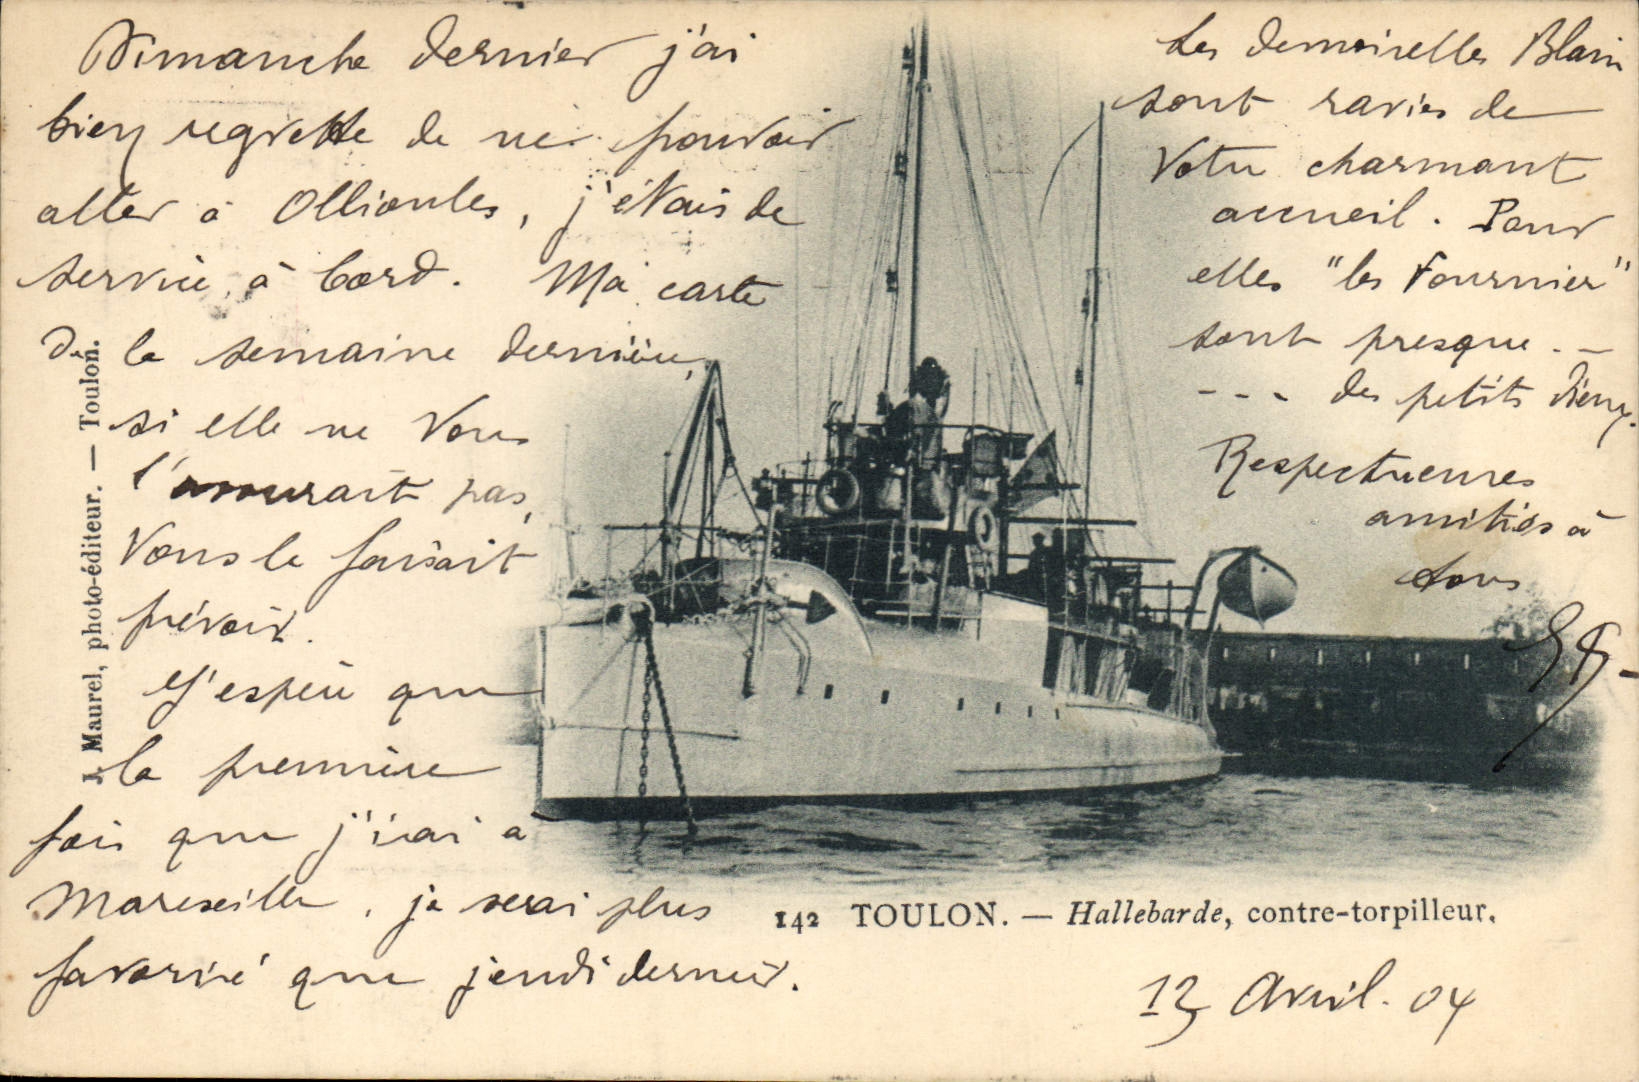 Dimanche dernier j'ai
bien regretté de ne pouvoir
aller à Ollioules, j'étais de
service à bord. Ma carte
de la semaine dernière,
si elle ne Vous
l'assurait pas,
Vous le faisait
prévoir.
J'espère que
la première
fois que j'irai a
Marseille, je serai plus
favorisé que jeudi dernier.
Les demoiselles Blain
sont ravies de
Votre charmant
accueil. Pour
elles "les Fournier"
sont presque . –
- - - des petits Dieux.
Respectueuses
amitiés à
tous
J. Maurel, photo-éditeur. — Toulon.
142 TOULON. — Hallebarde, contre-torpilleur.
13 Avril. 04